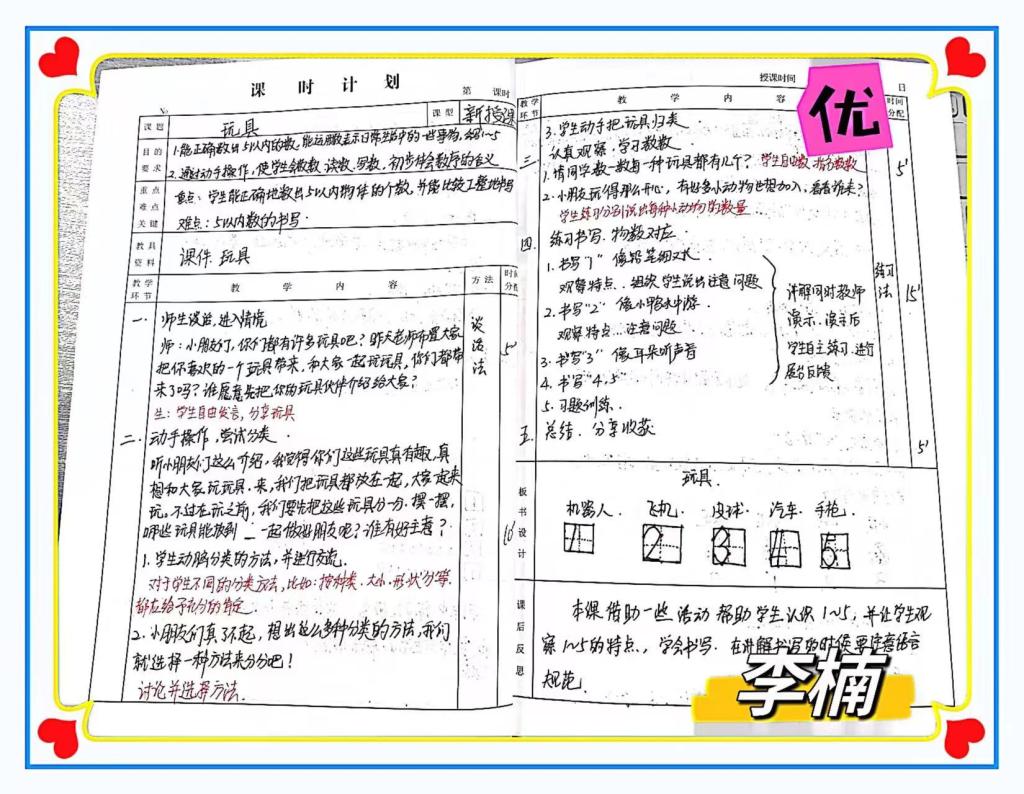 课时计划
第 课时
课题
玩具
课型
新授课
目的要求
1.能正确数出5以内的数,能运用数表示日常生活中的一些事物,会写1~5
2.通过动手操作,使学生会数数、读数、写数,初步体会数序的含义
重点难点关键
重点:学生能正确地数出5以内物体的个数,并能比较工整地书写
难点:5以内数的书写
教具资料
课件 玩具
教学环节
教学内容
方法
时间分配
一、
师生谈话,进入情境
谈话法
5'
师:小朋友们,你们都有许多玩具吧?昨天老师布置大家
把你喜欢的一个玩具带来,和大家一起玩玩具,你们都带
来了吗?谁愿意先把你的玩具伙伴介绍给大家?
生:学生自由发言,分享玩具
二、动手操作,尝试分类.
听小朋友们这么介绍,我觉得你们这些玩具真有趣,真
想和大家玩玩具.来,我们把玩具都放在一起,大家一起来
玩,不过在玩之前,我们要先把这些玩具分一分,摆一摆,
哪些玩具能放到_一起做好朋友呢?谁有好主意?
10'
1.学生动脑分类的方法,并进行交流.
对于学生不同的分类方法,比如:按种类、大小、形状分等.
都应给予充分的肯定
2.小朋友们真了不起,想出这么多种分类的方法,我们
就选择一种方法来分分吧!
讨论并选择方法.
授课时间
日
教学环节
教学内容
时间分配
优
3.学生动手把玩具归类
三
认真观察,学习数数
5'
1.请同学数一数每一种玩具都有几个?学生自由数,指名数数
2.小朋友玩得那么开心,有好多小动物也想加入,看看谁来?
学生练习分别说出每种小动物的数量.
四.
练习书写,物数对应.
练习法
15'
1.书写"1" 像铅笔细又长.
观察特点.组织学生说出注意问题
2.书写"2" 像小鸭水中游.
观察特点...注意问题
3.书写"3" 像耳朵听声音
4.书写"4,5"
5.习题训练.
讲解同时教师
演示,演示后
学生自主练习.进行
展台反馈
五.
总结,分享收获
5'
板书设计
玩具.
机器人. 飞机. 皮球. 汽车. 手枪.
1 2 3 4 5
课后反思
本课借助一些活动帮助学生认识1~5,并让学生观
察1~5的特点,学会书写.在讲解书写的时候要注意语言
规范.
李楠